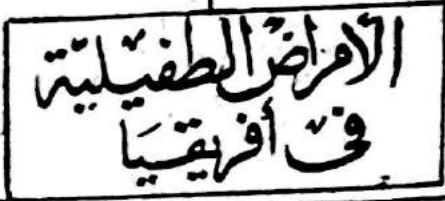 الأمراض الطفيلية
فى أفريقيا